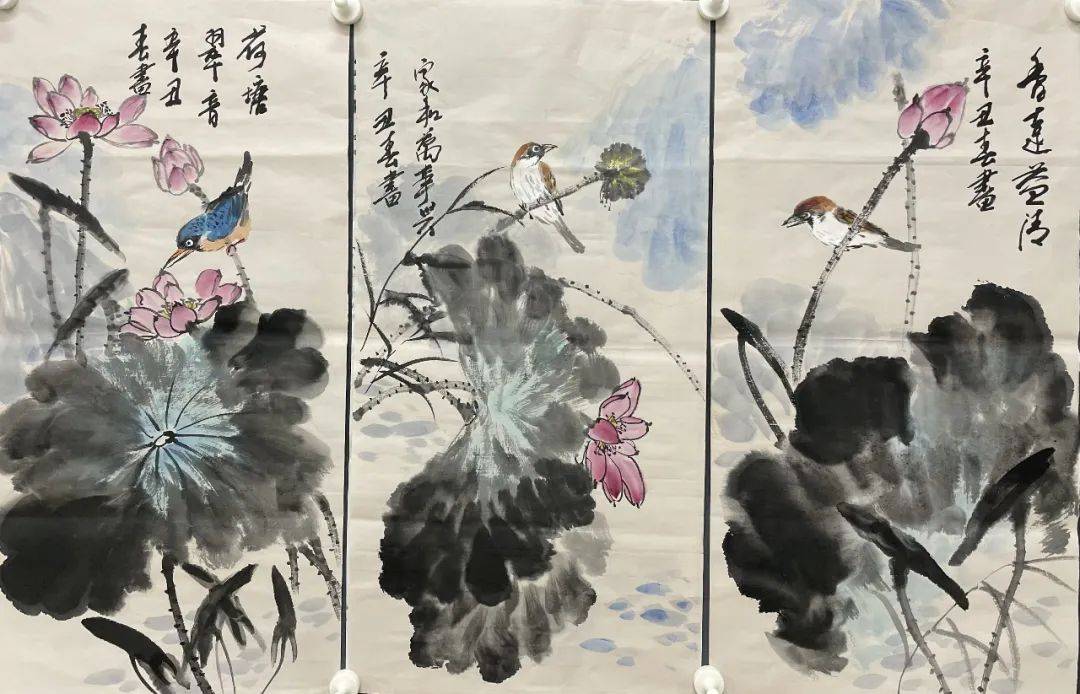 荷塘
翠音
辛丑
春畫
家和萬事兴
辛丑春畫
香遠益清
辛丑春畫